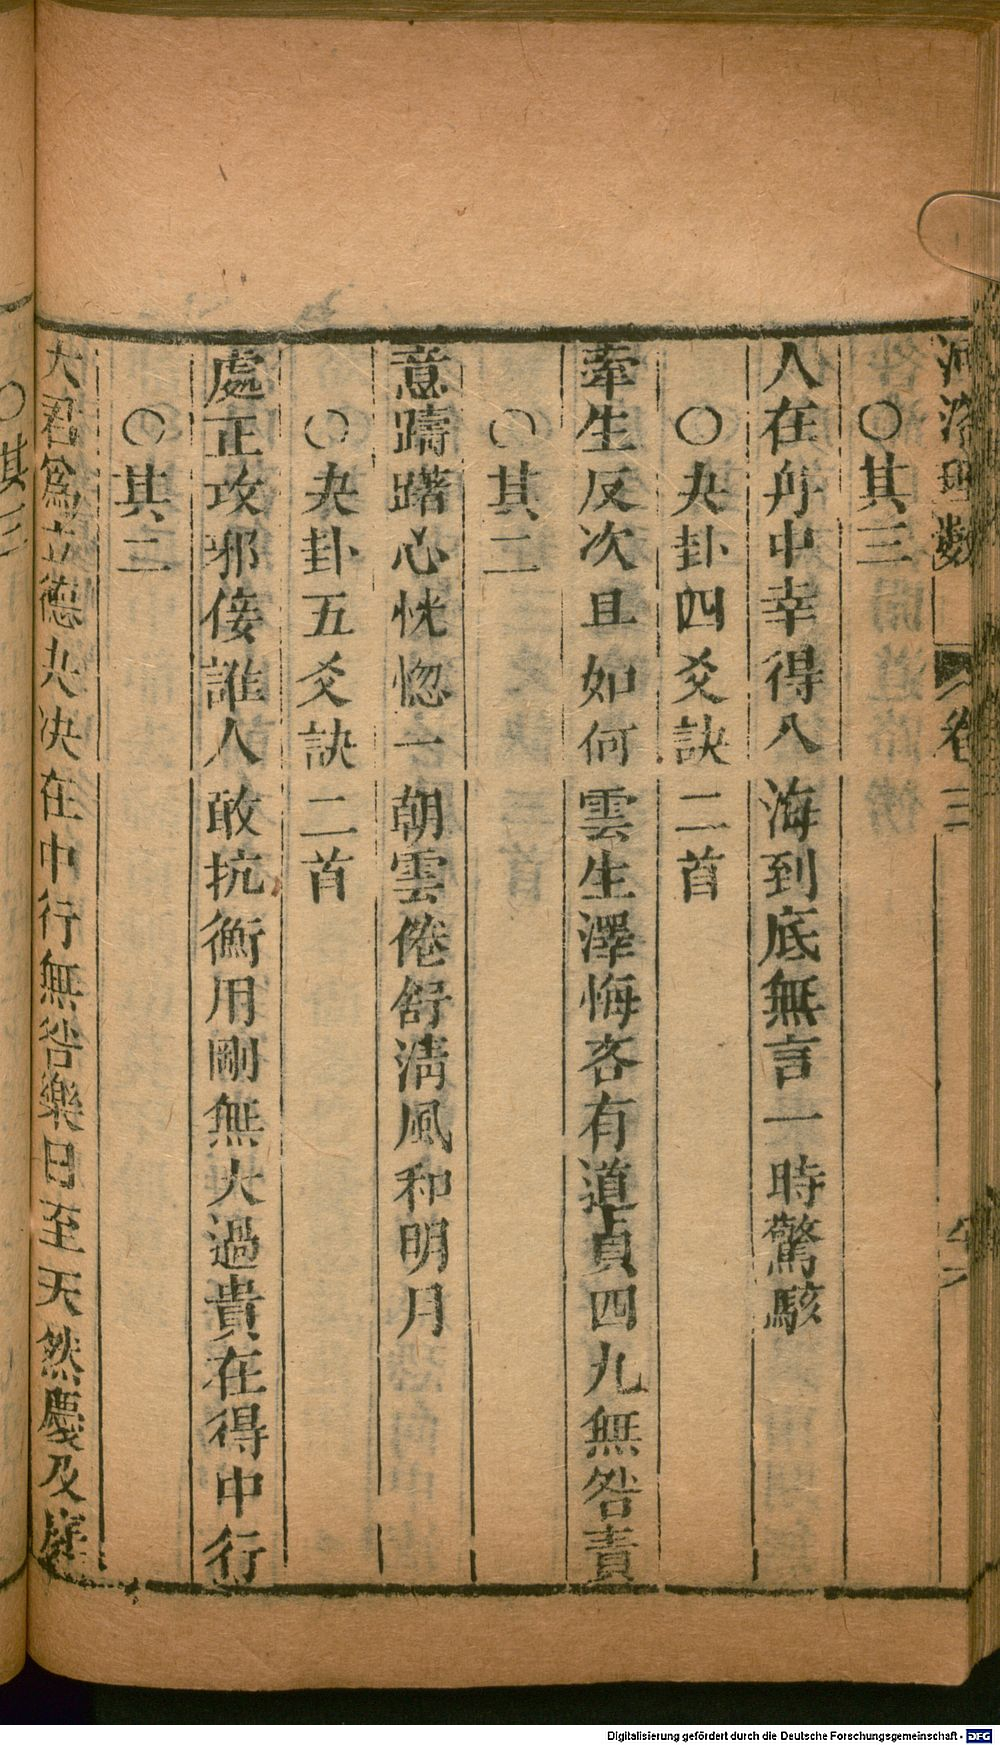 河洛理數 卷三
○其三
人在舟中幸得八海到底無言一時驚駭
○夬卦四爻訣二首
牽生反次且如何雲生澤悔吝有道貞四九無咎責
○其二
意躊躇心恍惚一朝雲倦舒淸風和明月
○夬卦五爻訣二首
處正攻邪佞誰人敢抗衡用剛無大過貴在得中行
○其二
大君爲立德夬决在中行無咎樂日至天然慶及
○其三
Digitalisierung gefördert durch die Deutsche Forschungsgemeinschaft - DFG